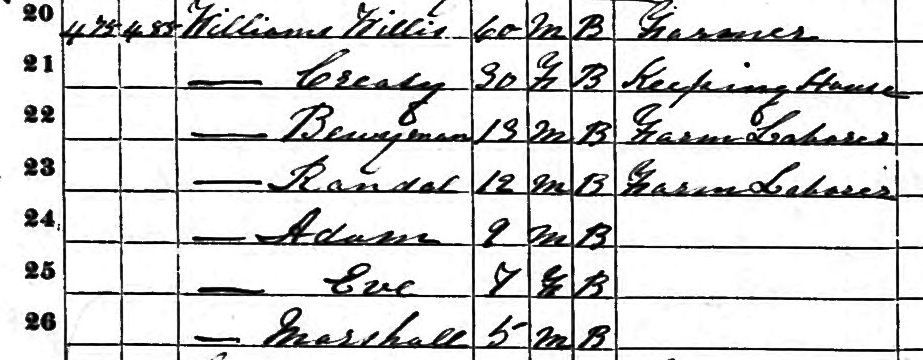 20 475 485 Williams Willis 60 M B Farmer
21 — Creasy 30 F B Keeping House
22 — 13 M B Farm Laborer
23 — Randal 12 M B Farm Laborer
24 — Adam 9 M B
25 — Eve 7 F B
26 — Marshall 5 M B